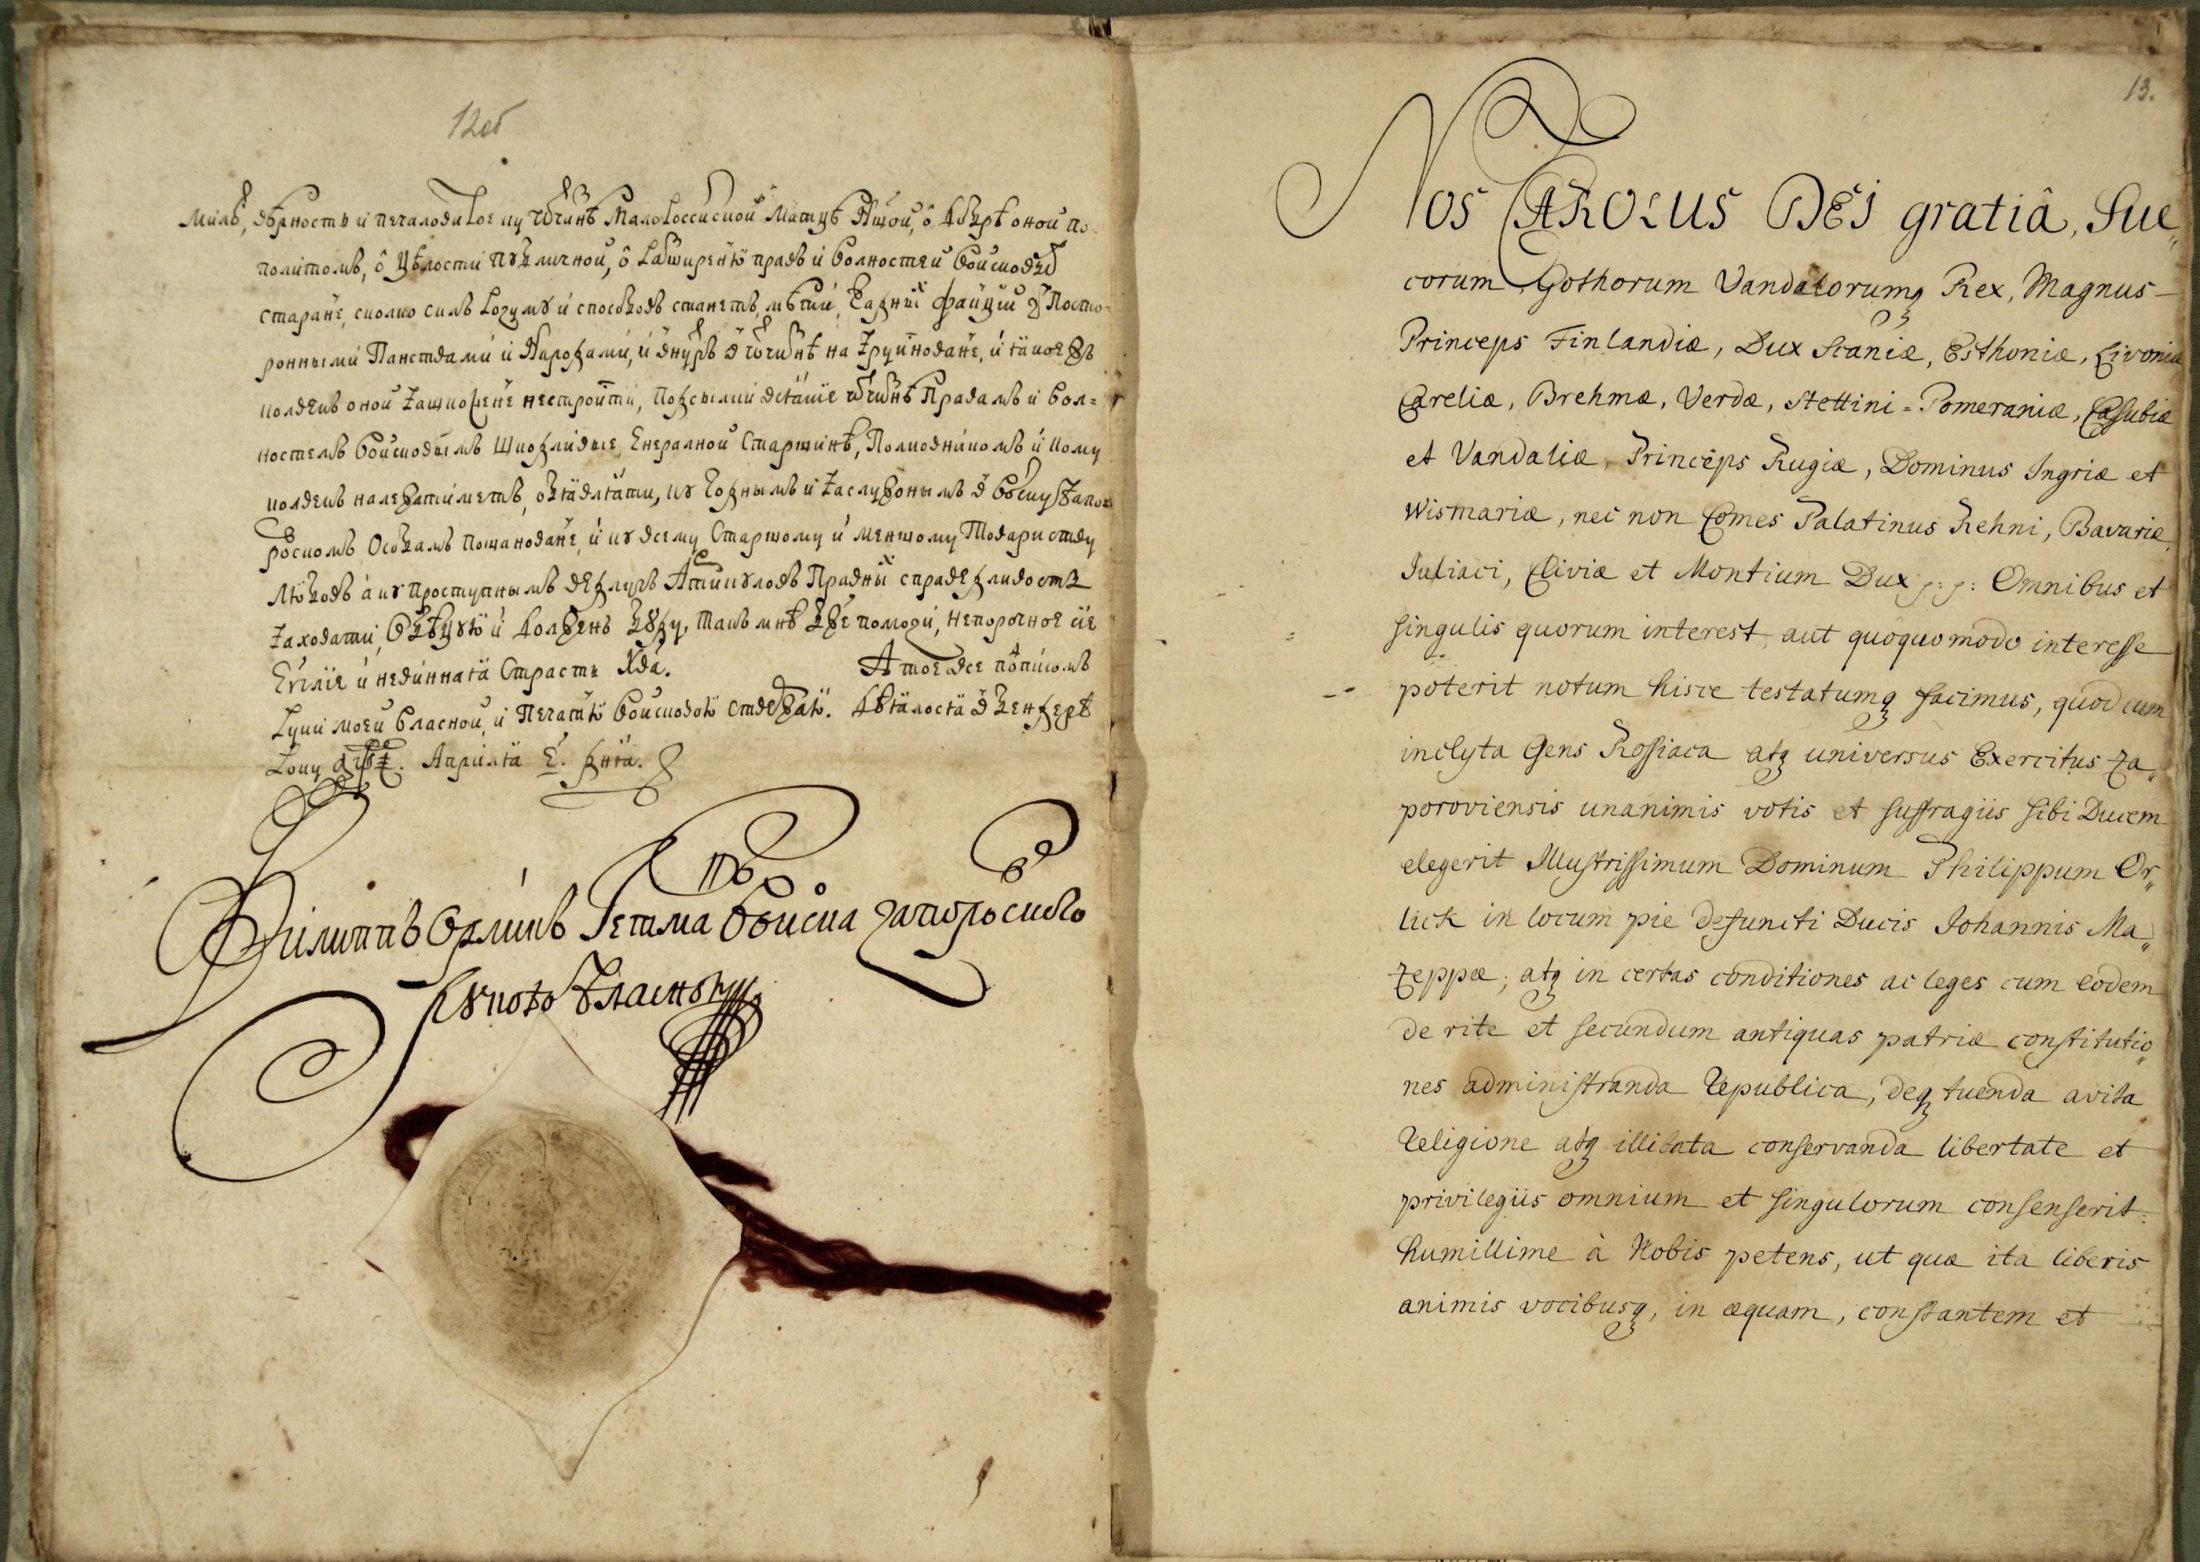 12об
милъ, вѣрность и печаловитое ку ѡтчизнѣ Малороссійской Матцѣ нашой, ѡ добрѣ оной по-
политомъ, ѡ цѣлости публичной, ѡ разширенїю правъ и волностей войсковыхъ
старанє, сколко силъ розуму и способовъ станетъ, мѣти, жадныхъ факцій з Посто-
ронными Панствами и Народами, и внутръ в ѡтчизнѣ на
Праваѡмъ и вол-
ностемъ войсковымъ шкодливые, Енералной Старшинѣ, Полковникомъ и кому
колвекъ належати метъ, обявляти, ку годнымъ и заслужонымъ в войску Запо-
рожскомъ особамъ пошанованє, и ку всему старшому и меншому Товариству
любовъ а ку проступнымъ ведлугъ Артикуловъ Правныхъ справедливость
заховати, обѣцую и долженъ буду, такъ мнѣ Бже помози, непорочноє сїє
Еѵглїє и невинная Страсть Хва. А тое все подписомъ
руки моей власной, и печатю войсковою ствержаю. Дѣялося в Бендерѣ
Року ҂аѱі. Априля е҃. дня.
Филиппъ Орликъ Гетманъ Войска Запорозского
рукою власною
13.
NOS CAROLUS DEI gratiâ, Sue„
corum Gothorum Vandalorumq Rex, Magnus
Princeps Finlandiæ, Dux Scaniæ, Esthoniæ, Livoniæ
Careliæ, Brehmæ, Verdæ, Stettini = Pomeraniæ, Casubiæ
et Vandaliæ, Princeps Rugiæ, Dominus Ingriæ et
Wismariæ, nec non Comes Palatinus Rehni, Bavariæ,
Juliaci, Cliviæ et Montium Dux p: p: Omnibus et
singulis quorum interest, aut quoquomodo interesse
poterit notum hisce testatumq facimus, quod cum
inclyta Gens Rossiaca atq universus Exercitus Za„
poroviensis unanimis votis et suffragiis sibi Ducem
elegerit Illustrissimum Dominum Philippum Or„
lick in locum pie defuncti Ducis Johannis Ma„
zeppæ; atq in certas conditiones ac leges cum eodem
de rite et secundum antiquas patriæ constitutio„
nes administranda Republica, deq tuenda avita
Religione atq illibata conservanda libertate et
privilegiis omnium et singulorum consenserit:
humillime à Nobis petens, ut quæ ita liberis
animis vocibusq, in æquam, constantem et